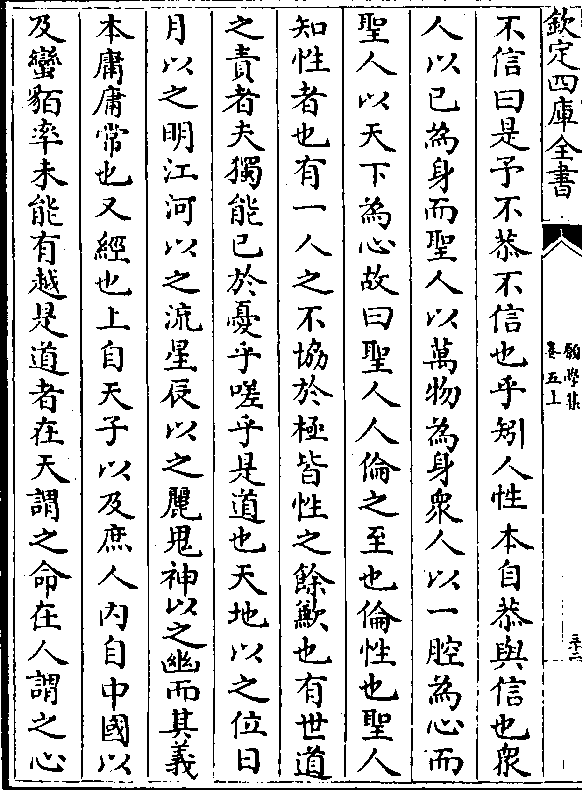 欽定四庫全書
願學集
卷五上
不信曰是予不恭不信也乎矧人性本自恭與信也衆
人以已為身而聖人以萬物為身衆人以一腔為心而
聖人以天下為心故曰聖人人倫之至也倫性也聖人
知性者也有一人之不協於極皆性之餘歉也有世道
之責者夫獨能已於憂乎嗟乎是道也天地以之位日
月以之明江河以之流星辰以之麗鬼神以之幽而其義
本庸庸常也又經也上自天子以及庶人内自中國以
及蠻貊率未能有越是道者在天謂之命在人謂之心